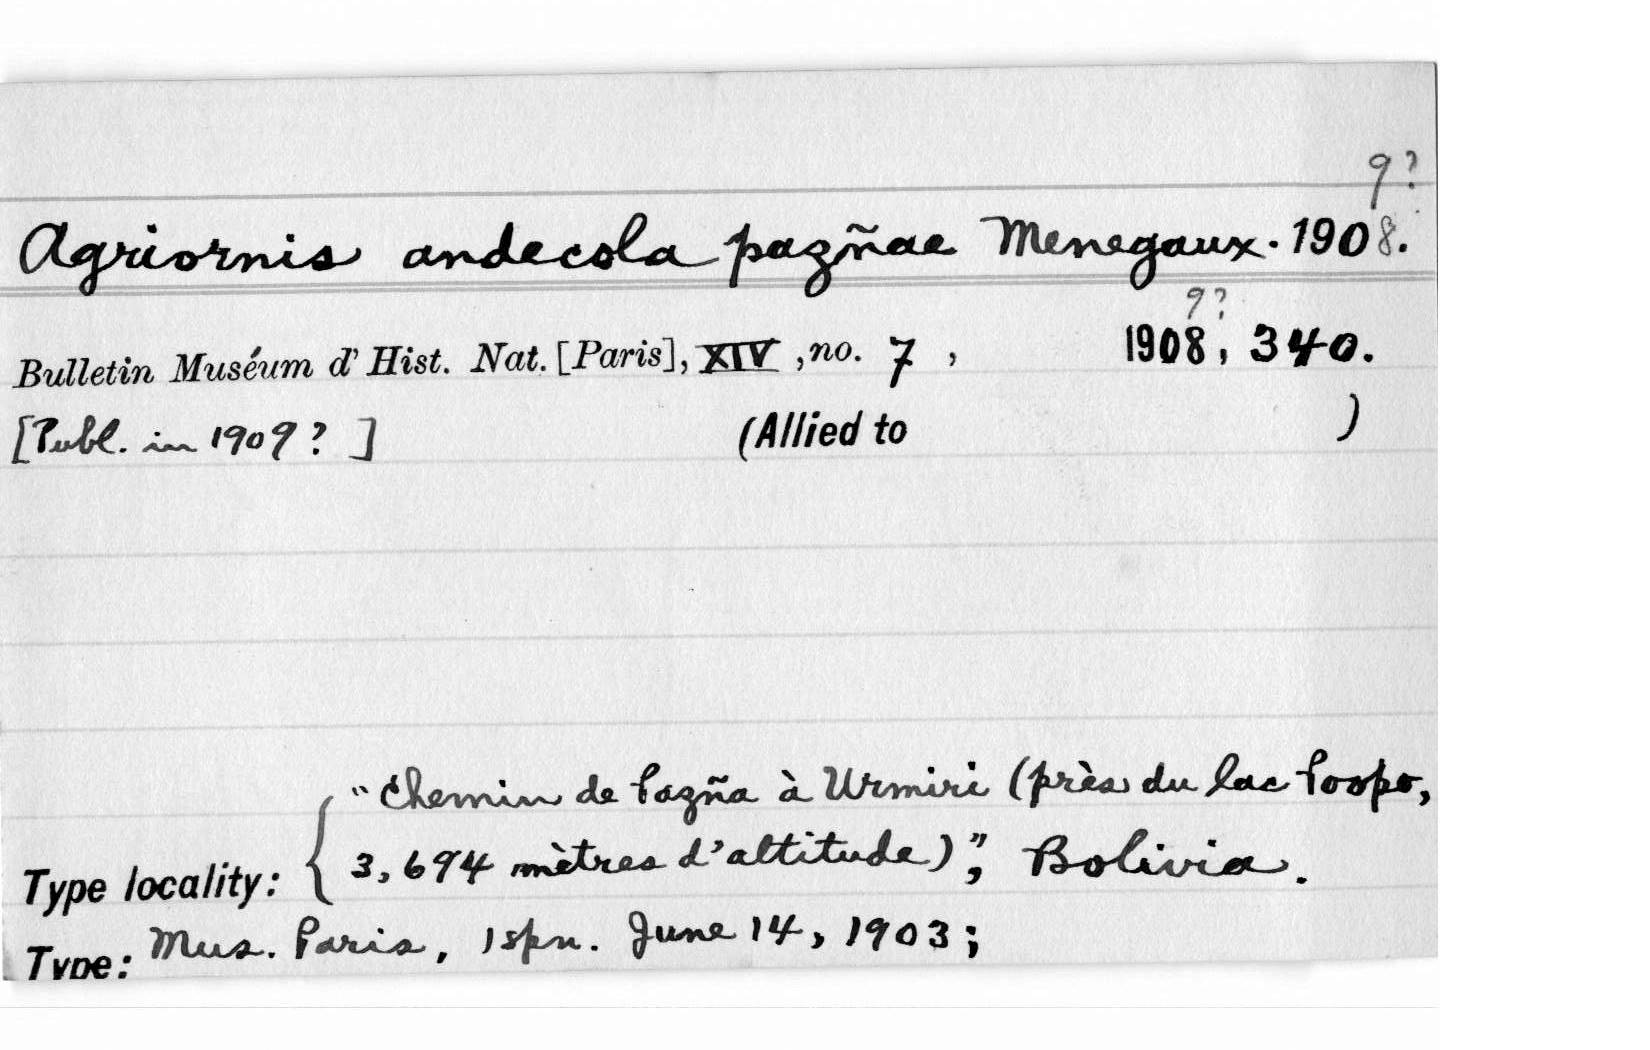 9?
Agriornis andecola pazñae Menegaux. 1908.
9?
Bulletin Muséum d' Hist. Nat. [Paris], XIV, no. 7, 1908, 340.
[Publ. in 1909? ] (Allied to )
"Chemin de Pazña à Urmiri (près du lac Poopo,
Type locality: { 3,694 mètres d'altitude)", Bolivia.
Type: Mus. Paris, 1 spn. June 14, 1903;